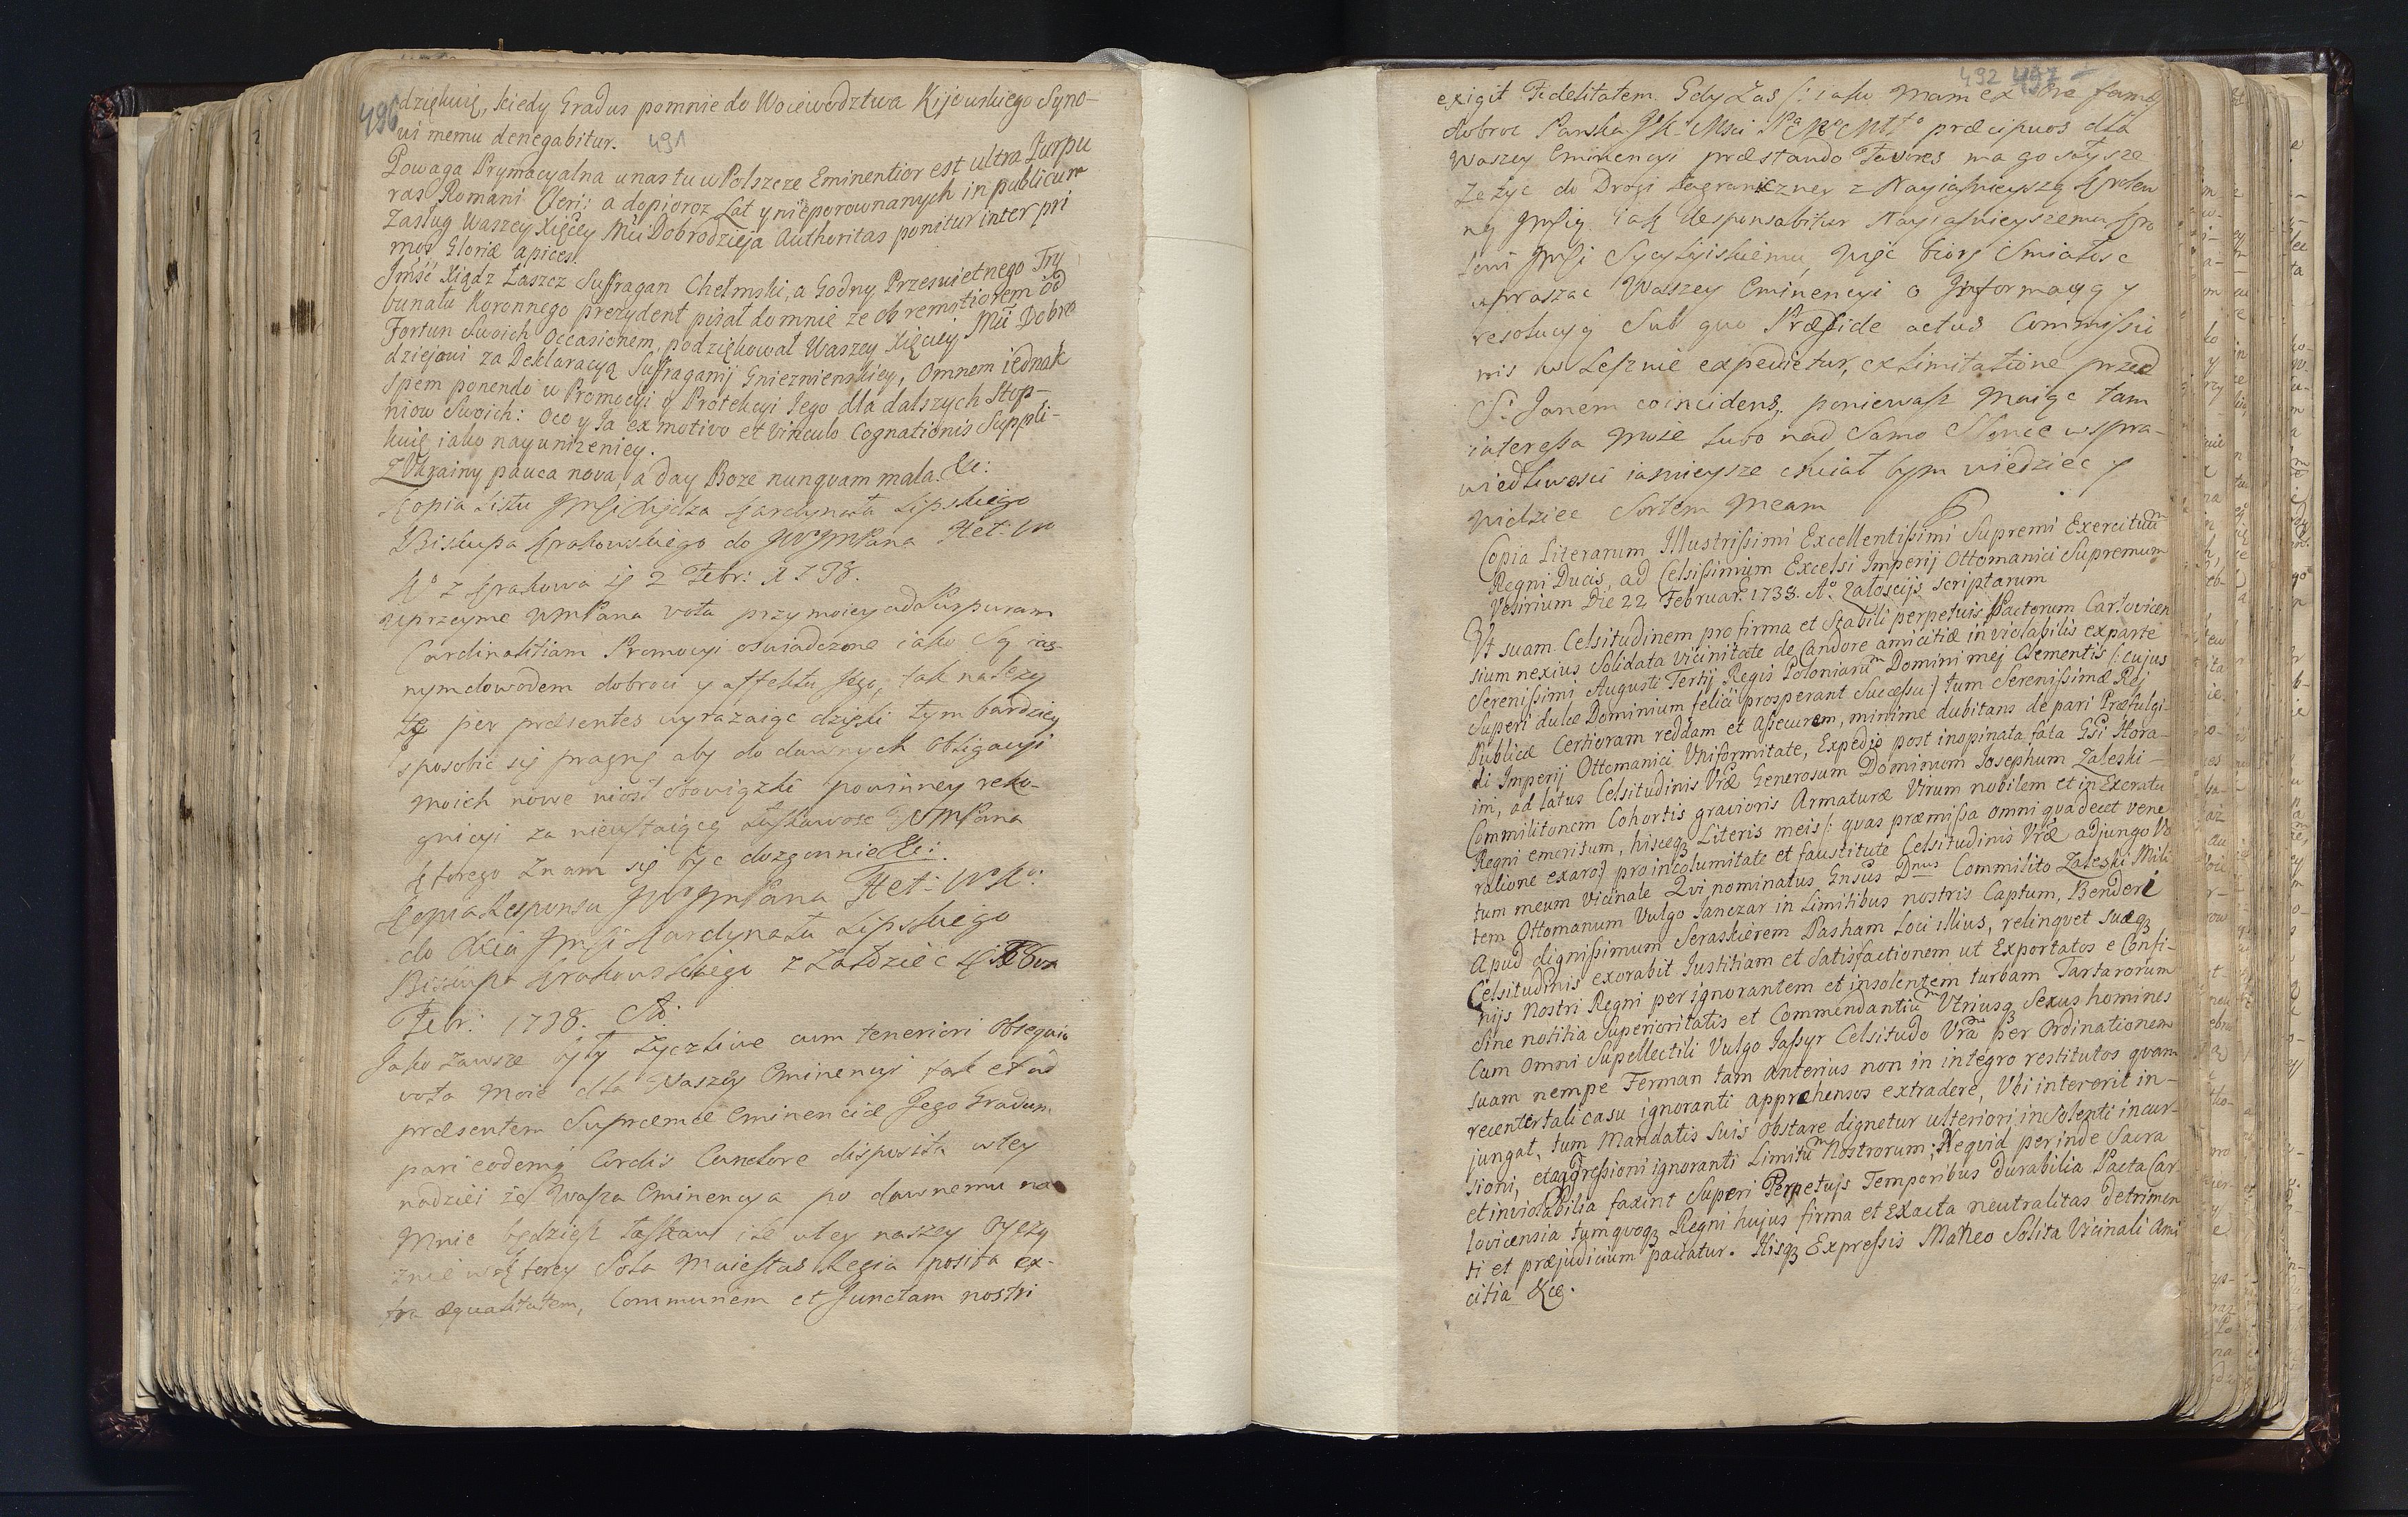 496
dziękuię, kiedy Gradus pomnie do Woiewodztwa Kijowskiego Syno-
wi memu denegabitur. 491
Powaga Prymacyalna unas tu w Polszcze Eminentior est ultra Purpu
ras Romani Cleri: a dopioroz Lat y nieporownanych in publicum
Zasług Waszey Xięcey Mći Dobrodzieja Authoritas ponitur inter pri
mos Gloriæ apices.
Jmść Xiądz Łaszcz Suffragan Chełmski, a Godny Prześwietnego Try
bunału Koronnego prezydent pisał do mnie że ob remotiorem od
Fortun Swoich Occasionem, podziękował Waszey Xięciey Mći Dobro
dziejowi za Deklaracyą Suffraganij Gnieznienskiey, Omnem iednak
Spem ponendo w Promocyi y Protekcyi Jego dla dalszych Stop-
niow Swoich: Oco y Ja ex motivo et Vinculo Cognationis Suppli-
kuię iako nayunizeniey.
Z Ukrainy pauca nova, a day Boze nunquam mala &c:
Kopia Listu Jmśći Xiędza Kardynała Lipskiego
Biskupa Krakowskiego do JWJmPana Het: W
Ko z Krakowa ię 2 Febr: 1738.
Uprzeyme WmPana vota przy moiey ad Purpuram
Cardinalitiam Promocyi oswiadczone iako Są ias-
nym dowodem dobroci y affektu Jego, tak należy
te per præsentes wyrazaiąc dzięki tym bardziey
sposobic się pragnę aby do dawnych Obligacyi
moich nowe niosł obowiązki powinney reko-
gnicyi za nieustaiącę łaskawosc JWMPana
ktorego Znam się byc dozgonnie &c:
Kopia Responsu JWJmPana Het: WKo:
do Xcia Jmśći Kardynała Lipskiego
Biskupa Krakowskiego z Załoziec
Febr: 1738. Ao.
Jako zawsze były życzliwe cum teneriori Obsequio
vota moie dla Waszey Eminencyi tak et ad
præsentem Supremæ Eminenciæ Jego Gradum
pari eodemq Cordis Candore disposita w tey
nadziei że Wasza Eminencya po dawnemu na
mnie będziesz łaskaw i że w tey naszey Oyczy
znie w ktorey Sola Maiestas Regia posita ex-
tra æqualitatem, Communem et Junctam nostri
492
exigit Fidelitatem. Gdy Zas /: iako mam ex ore famæ
dobroc Panska JK Mści præcipuos dla
Waszey Eminencyi præstando Favores ma go słysze
Zażyc do Drogi Zagraniczney z Nayiasnieyszą Krolew
ną Jmścią iak desponsabitur Nayiasnieyszemu Kro
lowi Jmści Sycyliiskiemu, więc biorę Smiałosc
upraszac Waszey Eminencyi o Jnformacyą y
resolucyą Sub quo Præside actus Commissio
nis w Lesznie expedietur, ex limitatione przed
S. Janem coincidens, poniewasz maiąc tam
interessa moie lubo nad Samo Słonce w spra-
wiedliwosci iasnieysze chciał bym wiedziec y
widziec Sortem meam
Copia Literarum Illustrissimi Excellentissimi Supremi Exercituum
Regni Ducis, ad Celsissimum Excelsi Imperij Ottomanici Supremum
Vesirium Die 22 Februar: 1738. Ao Załoscijs scriptarum
Ut suam Celsitudinem pro firma et Stabili perpetuis Pactorum Carlovicen
sium nexius Solidata Vicinitate de Candore amicitiæ inviolabilis ex parte
Serenissimi Augusti Tertij Regis Poloniarum Domini mej Clementis /: cujus
Superi dulce Dominium felici prosperant Successu :/ tum Serenissimæ Rej
Publicæ Certioram reddam et Assecurem, minime dubitans de pari Præfulgi
di Imperij Ottomanici Uniformitate, Expedio post inopinata fata Gsi Hora-
im, ad latus Celsitudinis Vræ Generosum Dominum Josephum Zaleski-
Commilitonem Cohortis gravioris Armaturæ Virum nobilem et in Exercitu
Regni emeritum, hisceq Literis meis /: quas præmissa omni qua decet vene
ratione exaro :/ pro incolumitate et faustitute Celsitudinis Vræ adjungo Vo
tum meum Vicinale Qui nominatus Gnsus Dnus Commilito Zaleski Mili
tem Ottomanum Vulgo Janczar in Limitibus nostris Captum, Benderi
Apud dignissimum Seraskierem Basham Loci illius, relinquet suæq
Celsitudinis exorabit Justitiam et Satisfactionem ut Exportatos e Confi-
nijs Nostri Regni per ignorantem et insolentem turbam Tartarorum
Sine notitia Superioritatis et Commendantium Utriusq Sexus homines
Cum Omni Supellectili Vulgo Jassyr Celsitudo Vra per Ordinationem
suam nempe Ferman tam anterius non in integro restitutos quam
recenter tali casu ignoranti apprehensos extradere, Ubi interorit in-
jungat, tum Mandatis suis Obstare dignetur ulteriori insolenti incur-
sioni, et aggressioni ignoranti Limitum Nostrorum; Nequid perinde Sacra
et inviolabilia faxint Superi Perpetujs Temporibus durabilia Pacta Car
lovicensia tumquoq Regni hujus firma et Exacta neutralitas detrimen
ti et præjudicium patiatur. Hisq Expressis Maneo Solita Vicinali Ami
citia &c.